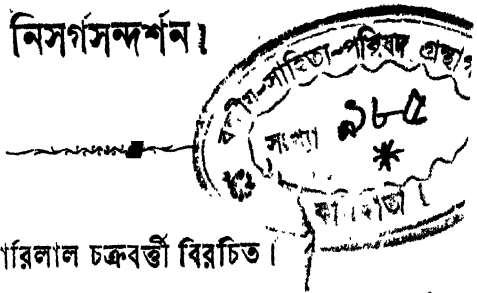 নিসর্গসন্দর্শন।
বঙ্গীয়-সাহিত্য-পরিষদ গ্রন্থা
সংখ্যা ৯৮৫
কলিকাতা।
ারিলাল চক্রবর্ত্তী বিরচিত।